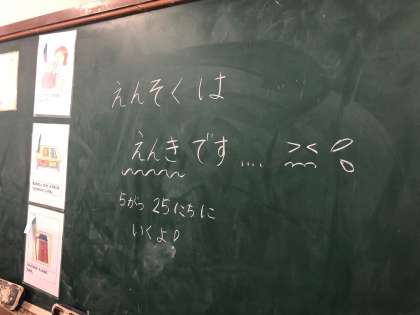 えんそくは
えんきです....><
5がつ25にちに
いくよ!